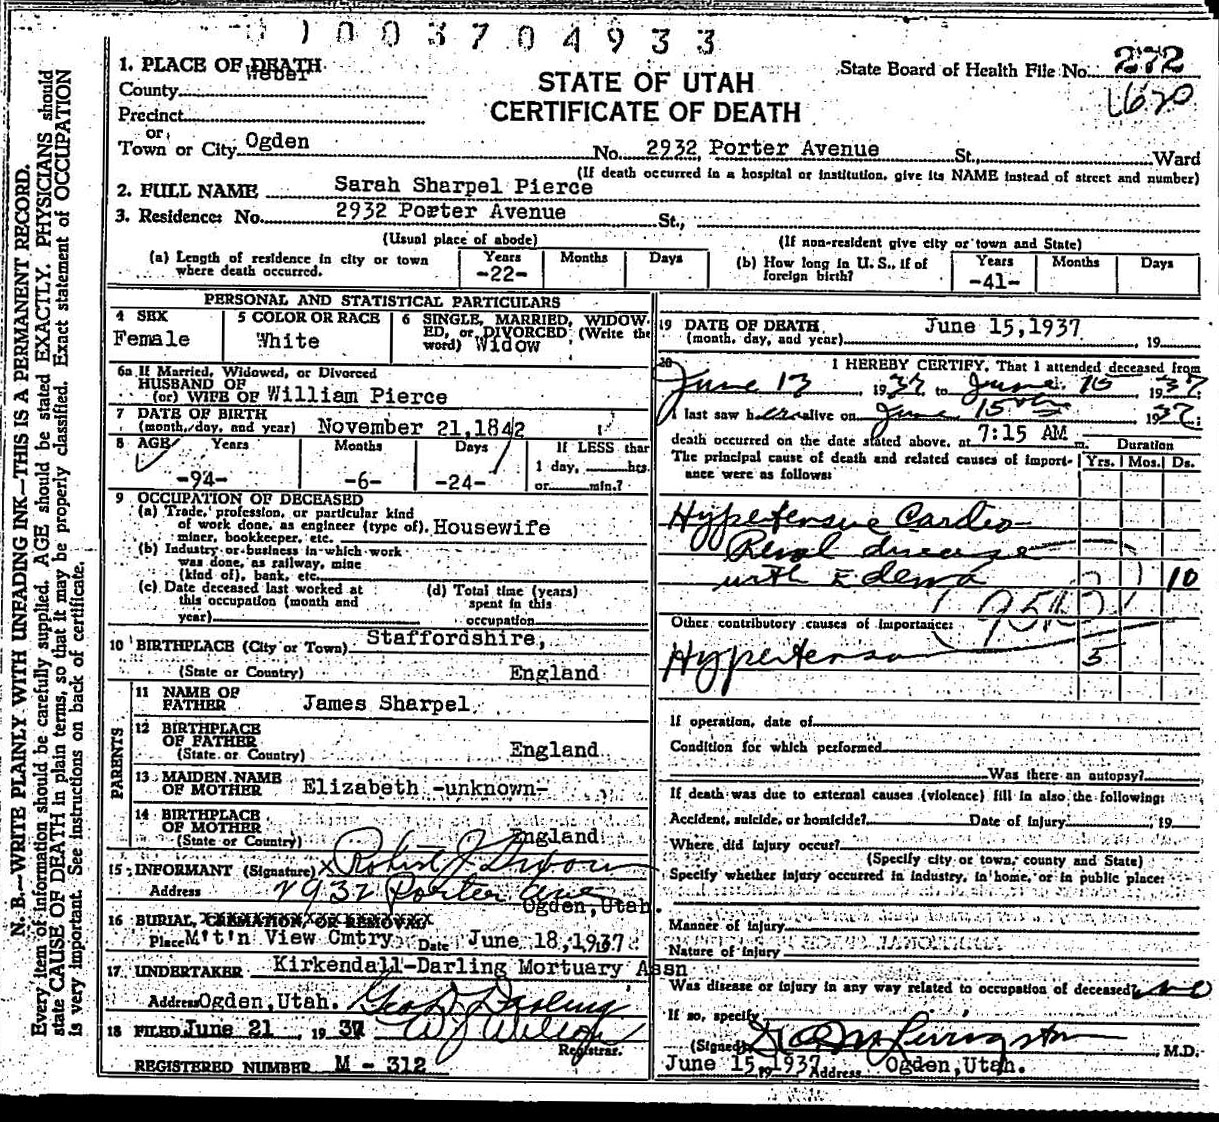 01003704933
1. PLACE OF DEATH
State Board of Health File No. 272
1620
STATE OF UTAH
CERTIFICATE OF DEATH
County Weber
Precinct
or
Town or City Ogden No. 2932 Porter Avenue St., Ward
(If death occurred in a hospital or institution, give its NAME instead of street and number)
2. FULL NAME Sarah Sharpel Pierce
3. Residence: No. 2932 Porter Avenue St.,
(Usual place of abode) (If non-resident give city or town and State)
(a) Length of residence in city or town where death occurred. Years -22- Months Days
(b) How long in U. S., if of foreign birth? Years -41- Months Days
PERSONAL AND STATISTICAL PARTICULARS
4 SEX Female
5 COLOR OR RACE White
6 SINGLE, MARRIED, WIDOWED, or DIVORCED (Write the word) Widow
6a If Married, Widowed, or Divorced
HUSBAND OF
(or) WIFE OF William Pierce
7 DATE OF BIRTH
(month, day, and year) November 21, 1842
8 AGE Years Months Days If LESS than
1 day, hrs.
-94- -6- -24- or min.?
9 OCCUPATION OF DECEASED
(a) Trade, profession, or particular kind
of work done, as engineer (type of), Housewife
miner, bookkeeper, etc.
(b) Industry or business in which work
was done, as railway, mine
(kind of), bank, etc.
(c) Date deceased last worked at
this occupation (month and
year)
(d) Total time (years)
spent in this
occupation
10 BIRTHPLACE (City or Town) Staffordshire,
(State or Country) England
PARENTS
11 NAME OF
FATHER James Sharpel
12 BIRTHPLACE
OF FATHER
(State or Country) England
13 MAIDEN NAME
OF MOTHER Elizabeth -unknown-
14 BIRTHPLACE
OF MOTHER
(State or Country) England
15 INFORMANT (Signature) x Robert J.
Address 2932 Porter Ave
Ogden, Utah.
16 BURIAL, CREMATION, OR REMOVAL
Place M't'n View Cmtry Date June 18, 1937
17 UNDERTAKER Kirkendall-Darling Mortuary Assn
Address Ogden, Utah. Geo D Darling
18 FILED June 21 1937 W J
Registrar.
REGISTERED NUMBER M - 312
19 DATE OF DEATH June 15, 1937
(month, day, and year) 19
20 I HEREBY CERTIFY, That I attended deceased from
June 13 1937 to June 15 1937
I last saw her alive on June 15th 1937;
death occurred on the date stated above, at 7:15 AM m.
Duration
The principal cause of death and related causes of importance were as follows: Yrs. Mos. Ds.
Hypertensive Cardio
Renal disease
with Edema 10
Other contributory causes of importance:
Hypertension 5
If operation, date of
Condition for which performed
Was there an autopsy?
If death was due to external causes (violence) fill in also the following:
Accident, suicide, or homicide? Date of injury, 19
Where did injury occur?
(Specify city or town, county and State)
Specify whether injury occurred in industry, in home, or in public place:
Manner of injury
Nature of injury
Was disease or injury in any way related to occupation of deceased? no
If so, specify
(Signed) Livingston, M.D.
June 15, 1937 Address Ogden, Utah.
N. B.—WRITE PLAINLY WITH UNFADING INK—THIS IS A PERMANENT RECORD.
Every item of information should be carefully supplied. AGE should be stated EXACTLY. PHYSICIANS should
state CAUSE OF DEATH in plain terms, so that it may be properly classified. Exact statement of OCCUPATION
is very important. See instructions on back of certificate.